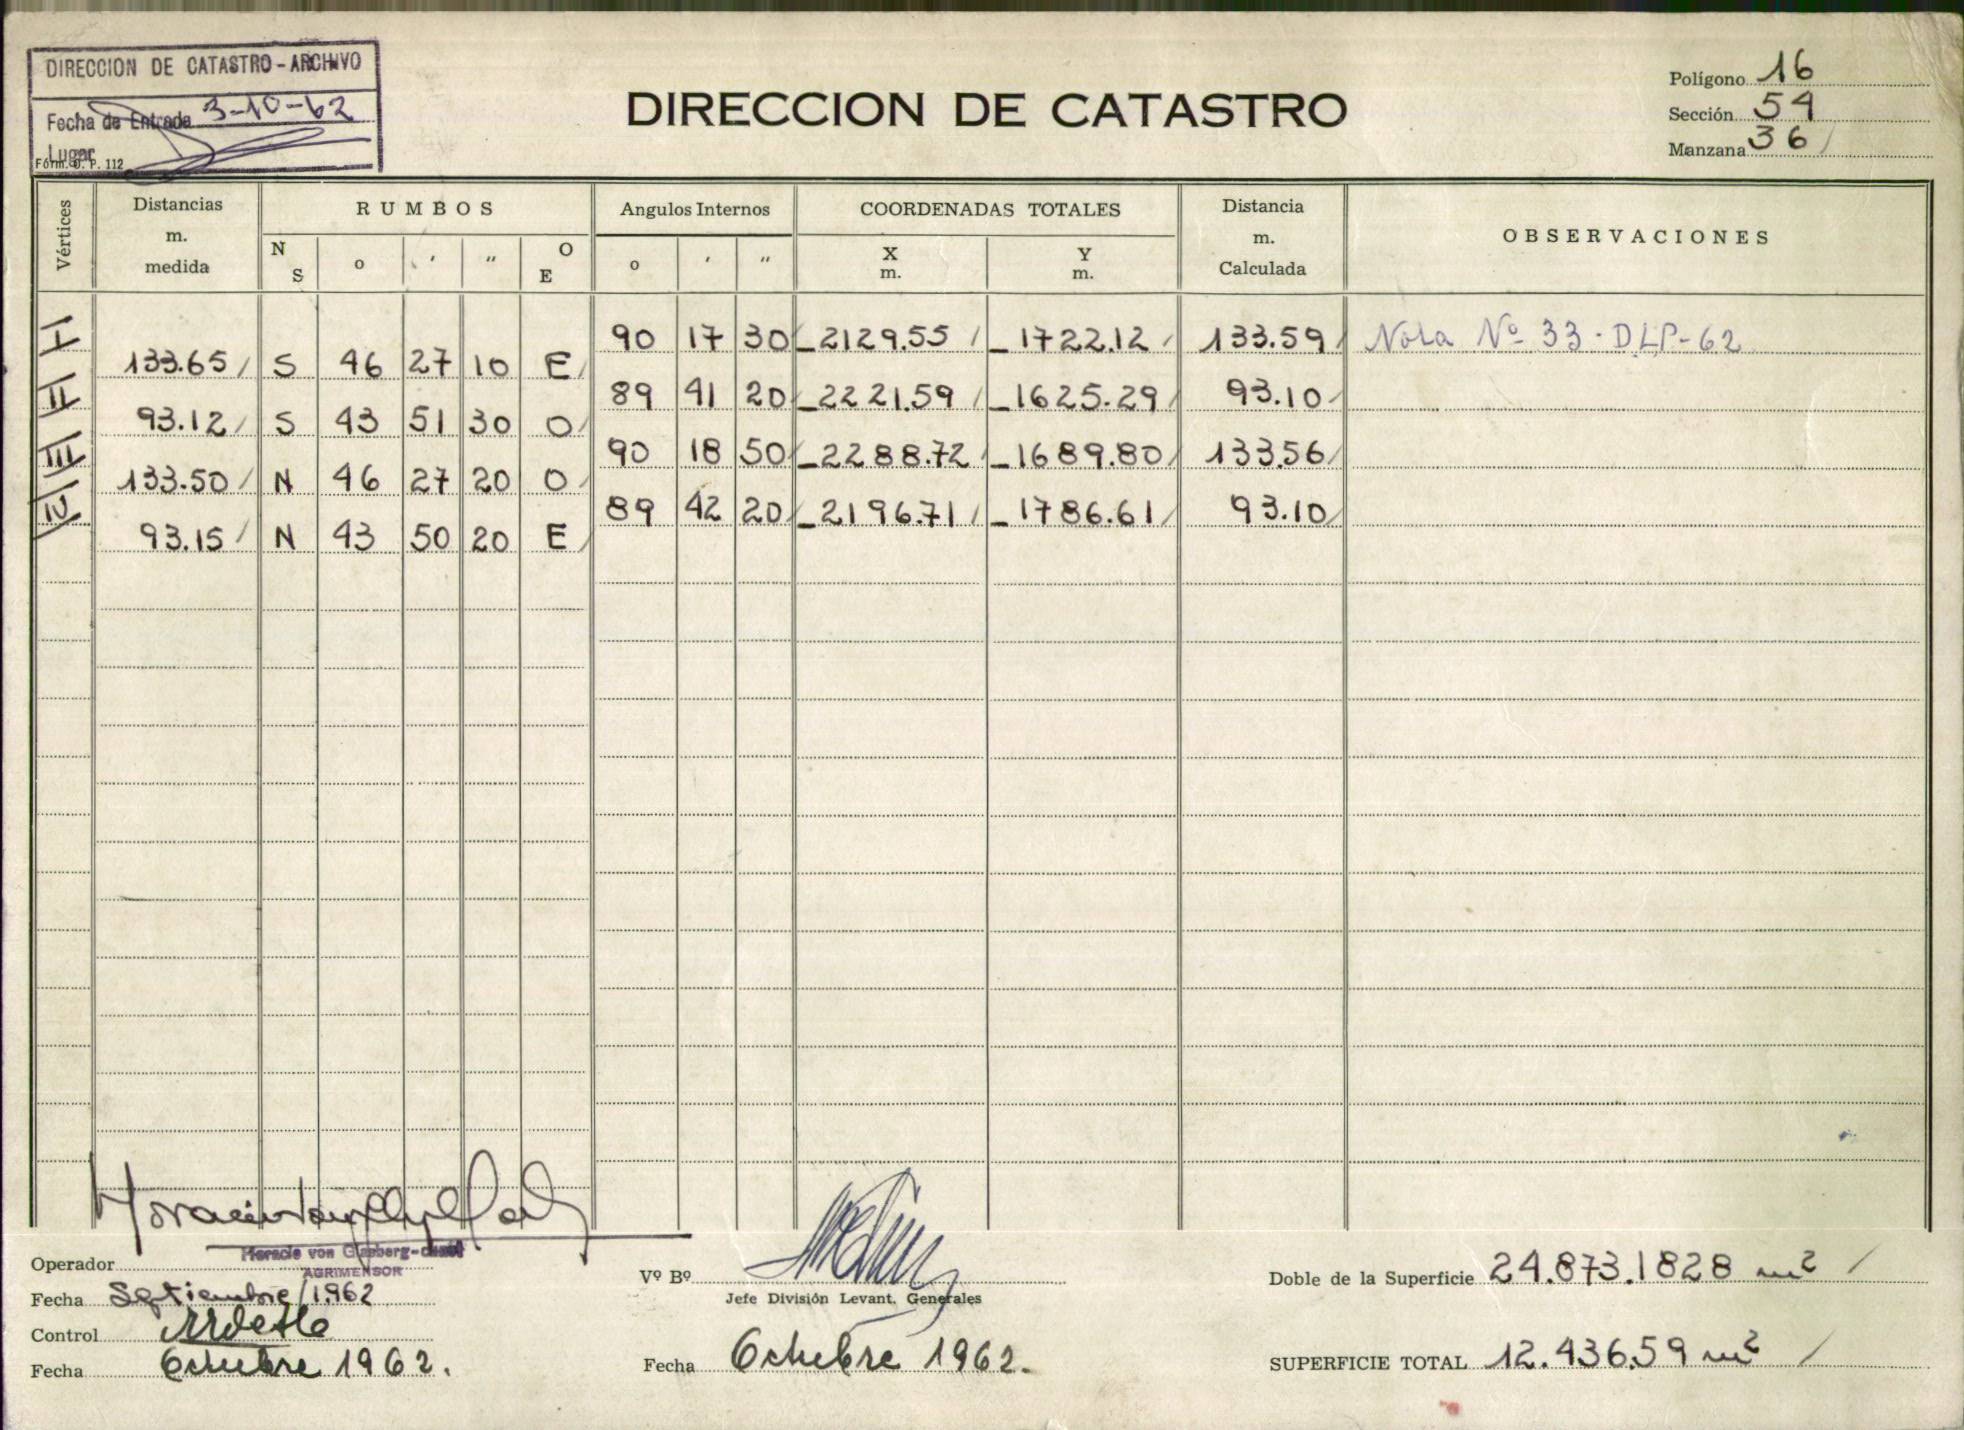 DIRECCION DE CATASTRO - ARCHIVO
Fecha de Entrada 3-10-62
Lugar
Fórm. D. P. 112
DIRECCION DE CATASTRO
Polígono 16
Sección 54
Manzana 36
Vértices Distancias m. medida RUMBOS N S o ' " O E Angulos Internos o ' " COORDENADAS TOTALES X m. Y m. Distancia m. Calculada OBSERVACIONES
I 90 17 30 -2129.55 -1722.12 133.59 Nota Nº 33-DLP-62
133.65 S 46 27 10 E
II 89 41 20 -2221.59 -1625.29 93.10
93.12 S 43 51 30 O
III 90 18 50 -2288.72 -1689.80 133.56
133.50 N 46 27 20 O
IV 89 42 20 -2196.71 -1786.61 93.10
93.15 N 43 50 20 E
Operador Horacio von
AGRIMENSOR
Fecha Septiembre/1962
Control
Fecha Octubre 1962.
Vº Bº
Jefe División Levant. Generales
Fecha Octubre 1962.
Doble de la Superficie 24.873.1828 m²
SUPERFICIE TOTAL 12.436.59 m²